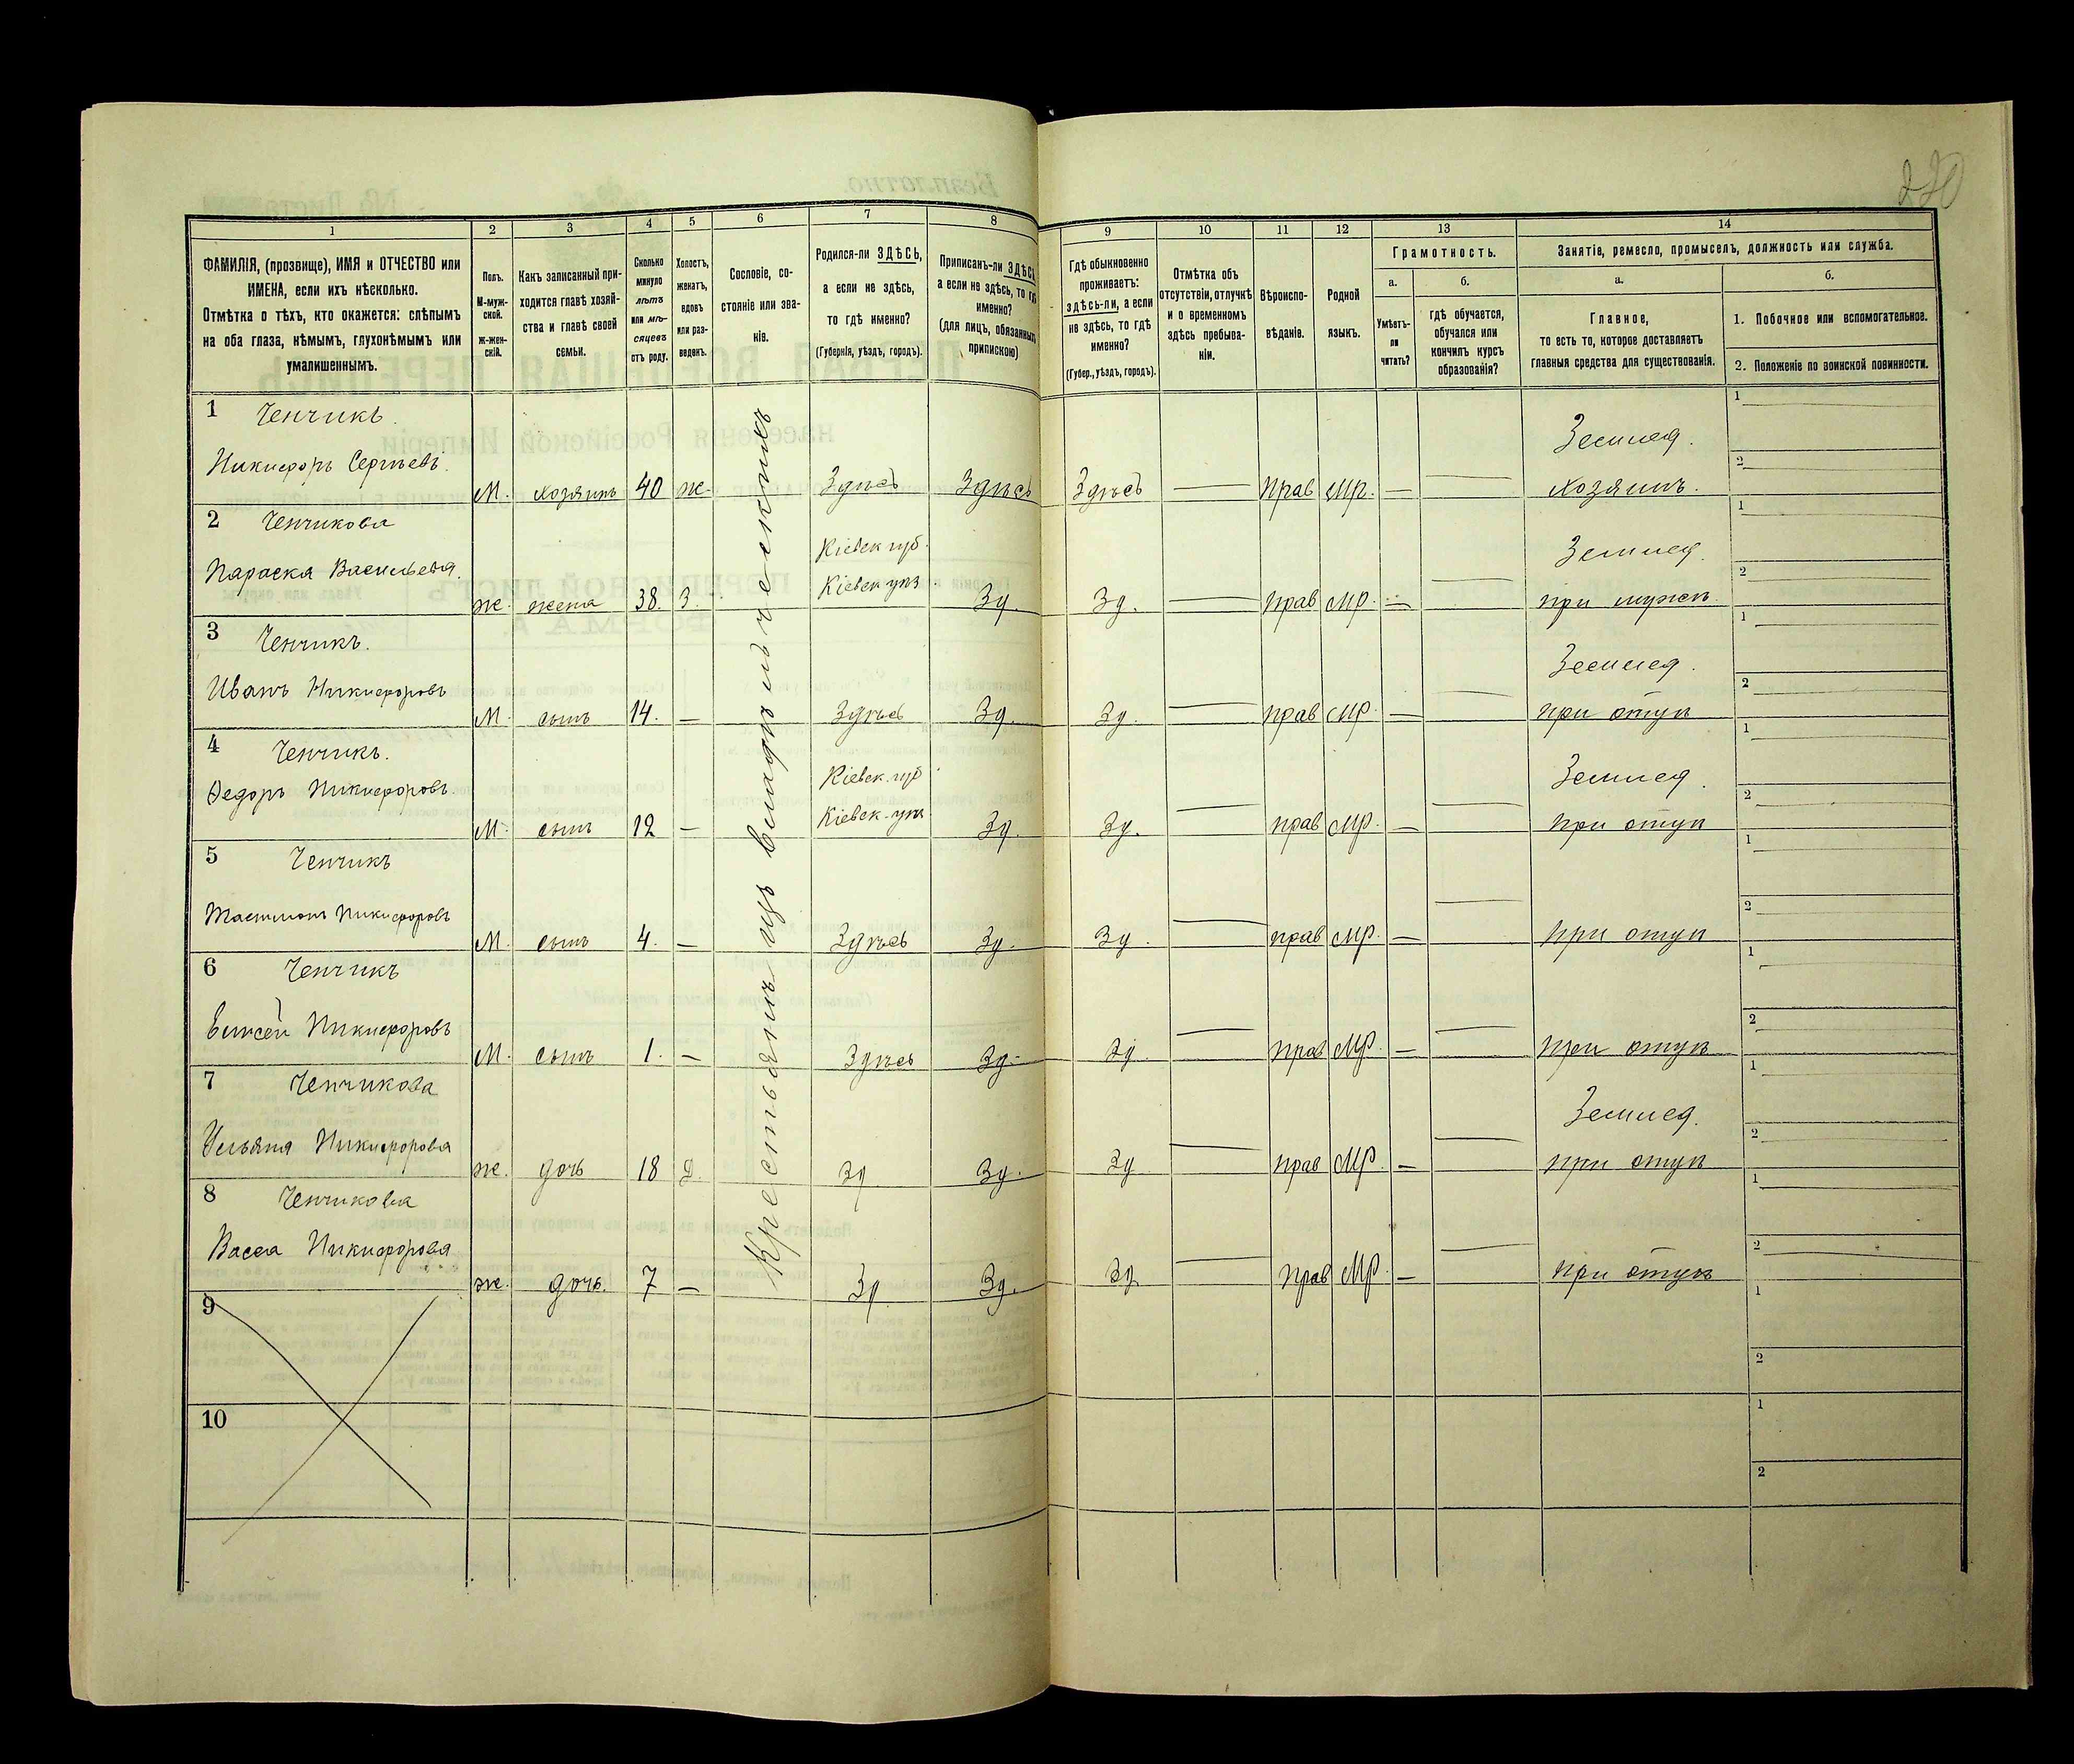 220
1 2 3 4 5 6 7 8 9 10 11 12 13 14
ФАМИЛІЯ, (прозвище), ИМЯ и ОТЧЕСТВО или
ИМЕНА, если ихъ нѣсколько.
Отмѣтка о тѣхъ, кто окажется: слѣпымъ
на оба глаза, нѣмымъ, глухонѣмымъ или
умалишеннымъ.
Полъ.
М-муж-
ской.
Ж-жен-
скій.
Какъ записанный при-
ходится главѣ хозяй-
ства и главѣ своей
семьи.
Сколько
минуло
лѣтъ
или мѣ-
сяцевъ
отъ роду.
Холостъ,
женатъ,
вдовъ
или раз-
веденъ.
Сословіе, со-
стояніе или зва-
ніе.
Родился-ли ЗДѢСЬ,
а если не здѣсь,
то гдѣ именно?
(Губернія, уѣздъ, городъ).
Приписанъ-ли ЗДѢСЬ,
а если не здѣсь, то гдѣ
именно?
(для лицъ, обязанныхъ
припиской)
Гдѣ обыкновенно
проживаетъ:
здѣсь-ли, а если
не здѣсь, то гдѣ
именно?
(Губер., уѣздъ, городъ).
Отмѣтка объ
отсутствіи, отлучкѣ
и о временномъ
здѣсь пребыва-
ніи.
Вѣроиспо-
вѣданіе.
Родной
языкъ.
Грамотность.
а.
Умѣетъ-
ли
читать?
б.
гдѣ обучается,
обучался или
кончилъ курсъ
образованія?
Занятіе, ремесло, промыселъ, должность или служба.
а.
Главное,
то есть то, которое доставляетъ
главныя средства для существованія.
б.
1. Побочное или вспомогательное.
2. Положеніе по воинской повинности.
Крестьянъ изъ владѣльческихъ
1 Ченчикъ. Землед. 1
Никифоръ Сергѣевъ. 2
М. хозяинъ 40 ж. Здѣсь Здѣсь Здѣсь — прав мр. — — хозяинъ.
2 Ченчикова Кіевск губ. Землед. 1
Параска Васильева. Кіевск уѣз. 2
ж. жена 38. З. Зд. Зд. — прав мр. — — при мужѣ
3 Ченчикъ. Землед. 1
Иванъ Никифоровъ 2
М. сынъ 14. — Здѣсь Зд. Зд. — прав мр. — — при отцѣ
4 Ченчикъ. Кіевск. губ Землед. 1
Федоръ Никифоровъ. Кіевск. уѣз 2
М. сынъ 12 — Зд. Зд. — прав мр. — — при отцѣ
5 Ченчикъ 1
Никифоровъ 2
М. сынъ 4. — Здѣсь Зд. Зд. — прав мр. — — при отцѣ
6 Ченчикъ 1
Елисей Никифоровъ 2
М. сынъ 1. — Здѣсь Зд. Зд. — прав мр. — — при отцѣ
7 Ченчикова Землед. 1
Ульяна Никифорова 2
ж. дочь 18 Д. Зд Зд. Зд — прав мр. — — при отцѣ
8 Ченчикова 1
Васса Никифорова 2
ж. дочь. 7 — Зд. Зд. Зд — прав мр. — — при отцѣ
9 1
2
10 1
2